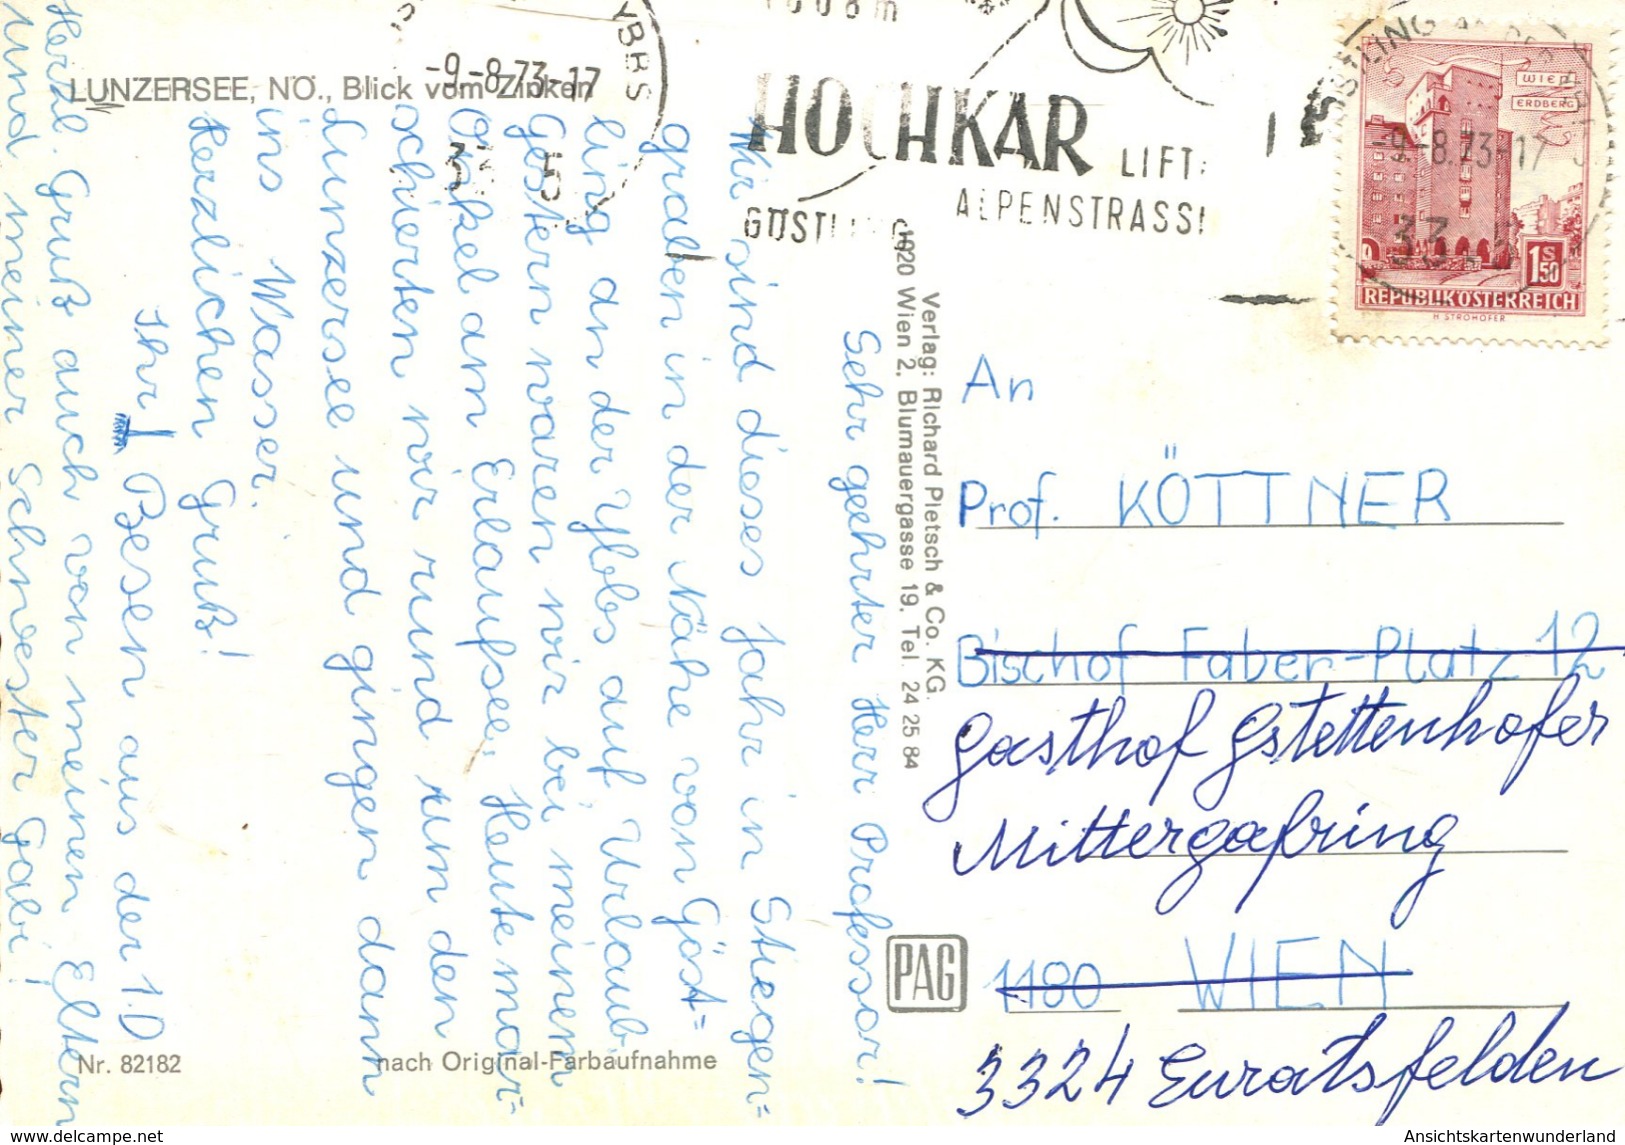 LUNZERSEE, NÖ., Blick vom Zinken
Sehr geehrter Herr Professor!
Wir sind dieses Jahr in Stiegen=
graben in der Nähe von Göst=
ling an der Ybbs auf Urlaub.
Gestern waren wir bei meinem
Onkel am Erlaufsee. Heute mar=
schierten wir rund um den
Lunzersee und gingen dann
ins Wasser.
Herzlichen Gruß!
Ihr Besen aus der 1.D
Herzl. Gruß auch von meinen Eltern
und meiner Schwester Gabi!
Nr. 82182
nach Original-Farbaufnahme
Verlag: Richard Pietsch & Co. KG.
1020 Wien 2, Blumauergasse 19, Tel. 24 25 84
PAG
YBBS
-9.-8.73-17
33 5
1808m
HOCHKAR
LIFT
ALPENSTRASSE
GÖSTLING
-9.-8.73-17
33
WIEN
ERDBERG
1 S 50
REPUBLIK ÖSTERREICH
H STROHOFER
An
Prof. KÖTTNER
Bischof Faber-Platz 12
Gasthof Gstettenhofer
Mittergafring
1180 WIEN
3324 Euratsfelden
AnsichtskartenWunderland